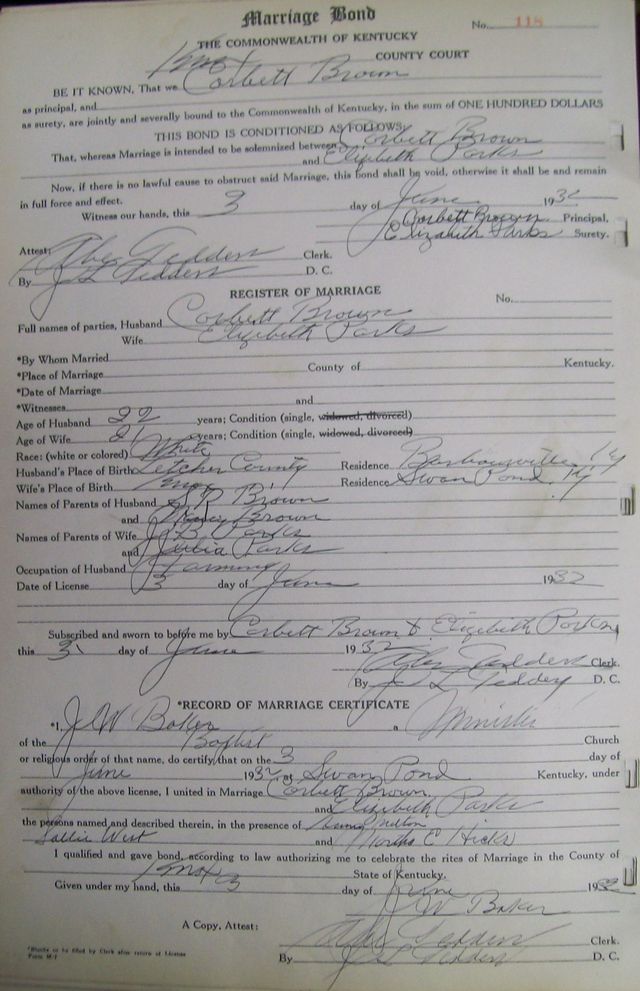 Marriage Bond
No. 118
THE COMMONWEALTH OF KENTUCKY
Knox COUNTY COURT
BE IT KNOWN, That we Corbett Brown
as principal, and
as surety, are jointly and severally bound to the Commonwealth of Kentucky, in the sum of ONE HUNDRED DOLLARS
THIS BOND IS CONDITIONED AS FOLLOWS:
That, whereas Marriage is intended to be solemnized between Corbett Brown
and Elizibeth Parks
Now, if there is no lawful cause to obstruct said Marriage, this bond shall be void, otherwise it shall be and remain
in full force and effect.
Witness our hands, this 3 day of June 1932
Corbett Brown Principal,
Elizabeth Parks Surety.
Attest: Abe Tedders Clerk.
By J L Tedders D. C.
REGISTER OF MARRIAGE
No.
Full names of parties, Husband Corbett Brown
Wife Elizibeth Parks
*By Whom Married
*Place of Marriage County of Kentucky.
*Date of Marriage
*Witnesses and
Age of Husband 22 years; Condition (single, widowed, divorced)
Age of Wife 21 years; Condition (single, widowed, divorced)
Race: (white or colored) White
Husband's Place of Birth Letcher County Residence Barbourville, Ky
Wife's Place of Birth Knox Residence Swan Pond, Ky
Names of Parents of Husband Brown
and Brown
Names of Parents of Wife J B Parks
and Julia Parks
Occupation of Husband Farming
Date of License 3 day of June 1932
Subscribed and sworn to before me by Corbett Brown & Elizibeth Parks
this 3 day of June 1932
Abe Tedders Clerk.
By J L Tedders D. C.
*RECORD OF MARRIAGE CERTIFICATE
*I, J W Baker a Minister
of the Baptist Church
or religious order of that name, do certify that on the 3 day of
June 1932 at Swan Pond Kentucky, under
authority of the above license, I united in Marriage Corbett Brown
and Elizibeth Parks
the persons named and described therein, in the presence of
Sallie West and Martha E Hicks
I qualified and gave bond, according to law authorizing me to celebrate the rites of Marriage in the County of
Knox State of Kentucky.
Given under my hand, this 3 day of June 1932
J W Baker
A Copy, Attest:
Abe Tedders Clerk.
By J L Tedders D. C.
*Blanks to be filled by Clerk after return of License
Form M-1